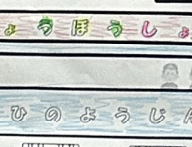 ょうぼうしょ
ひのようじん